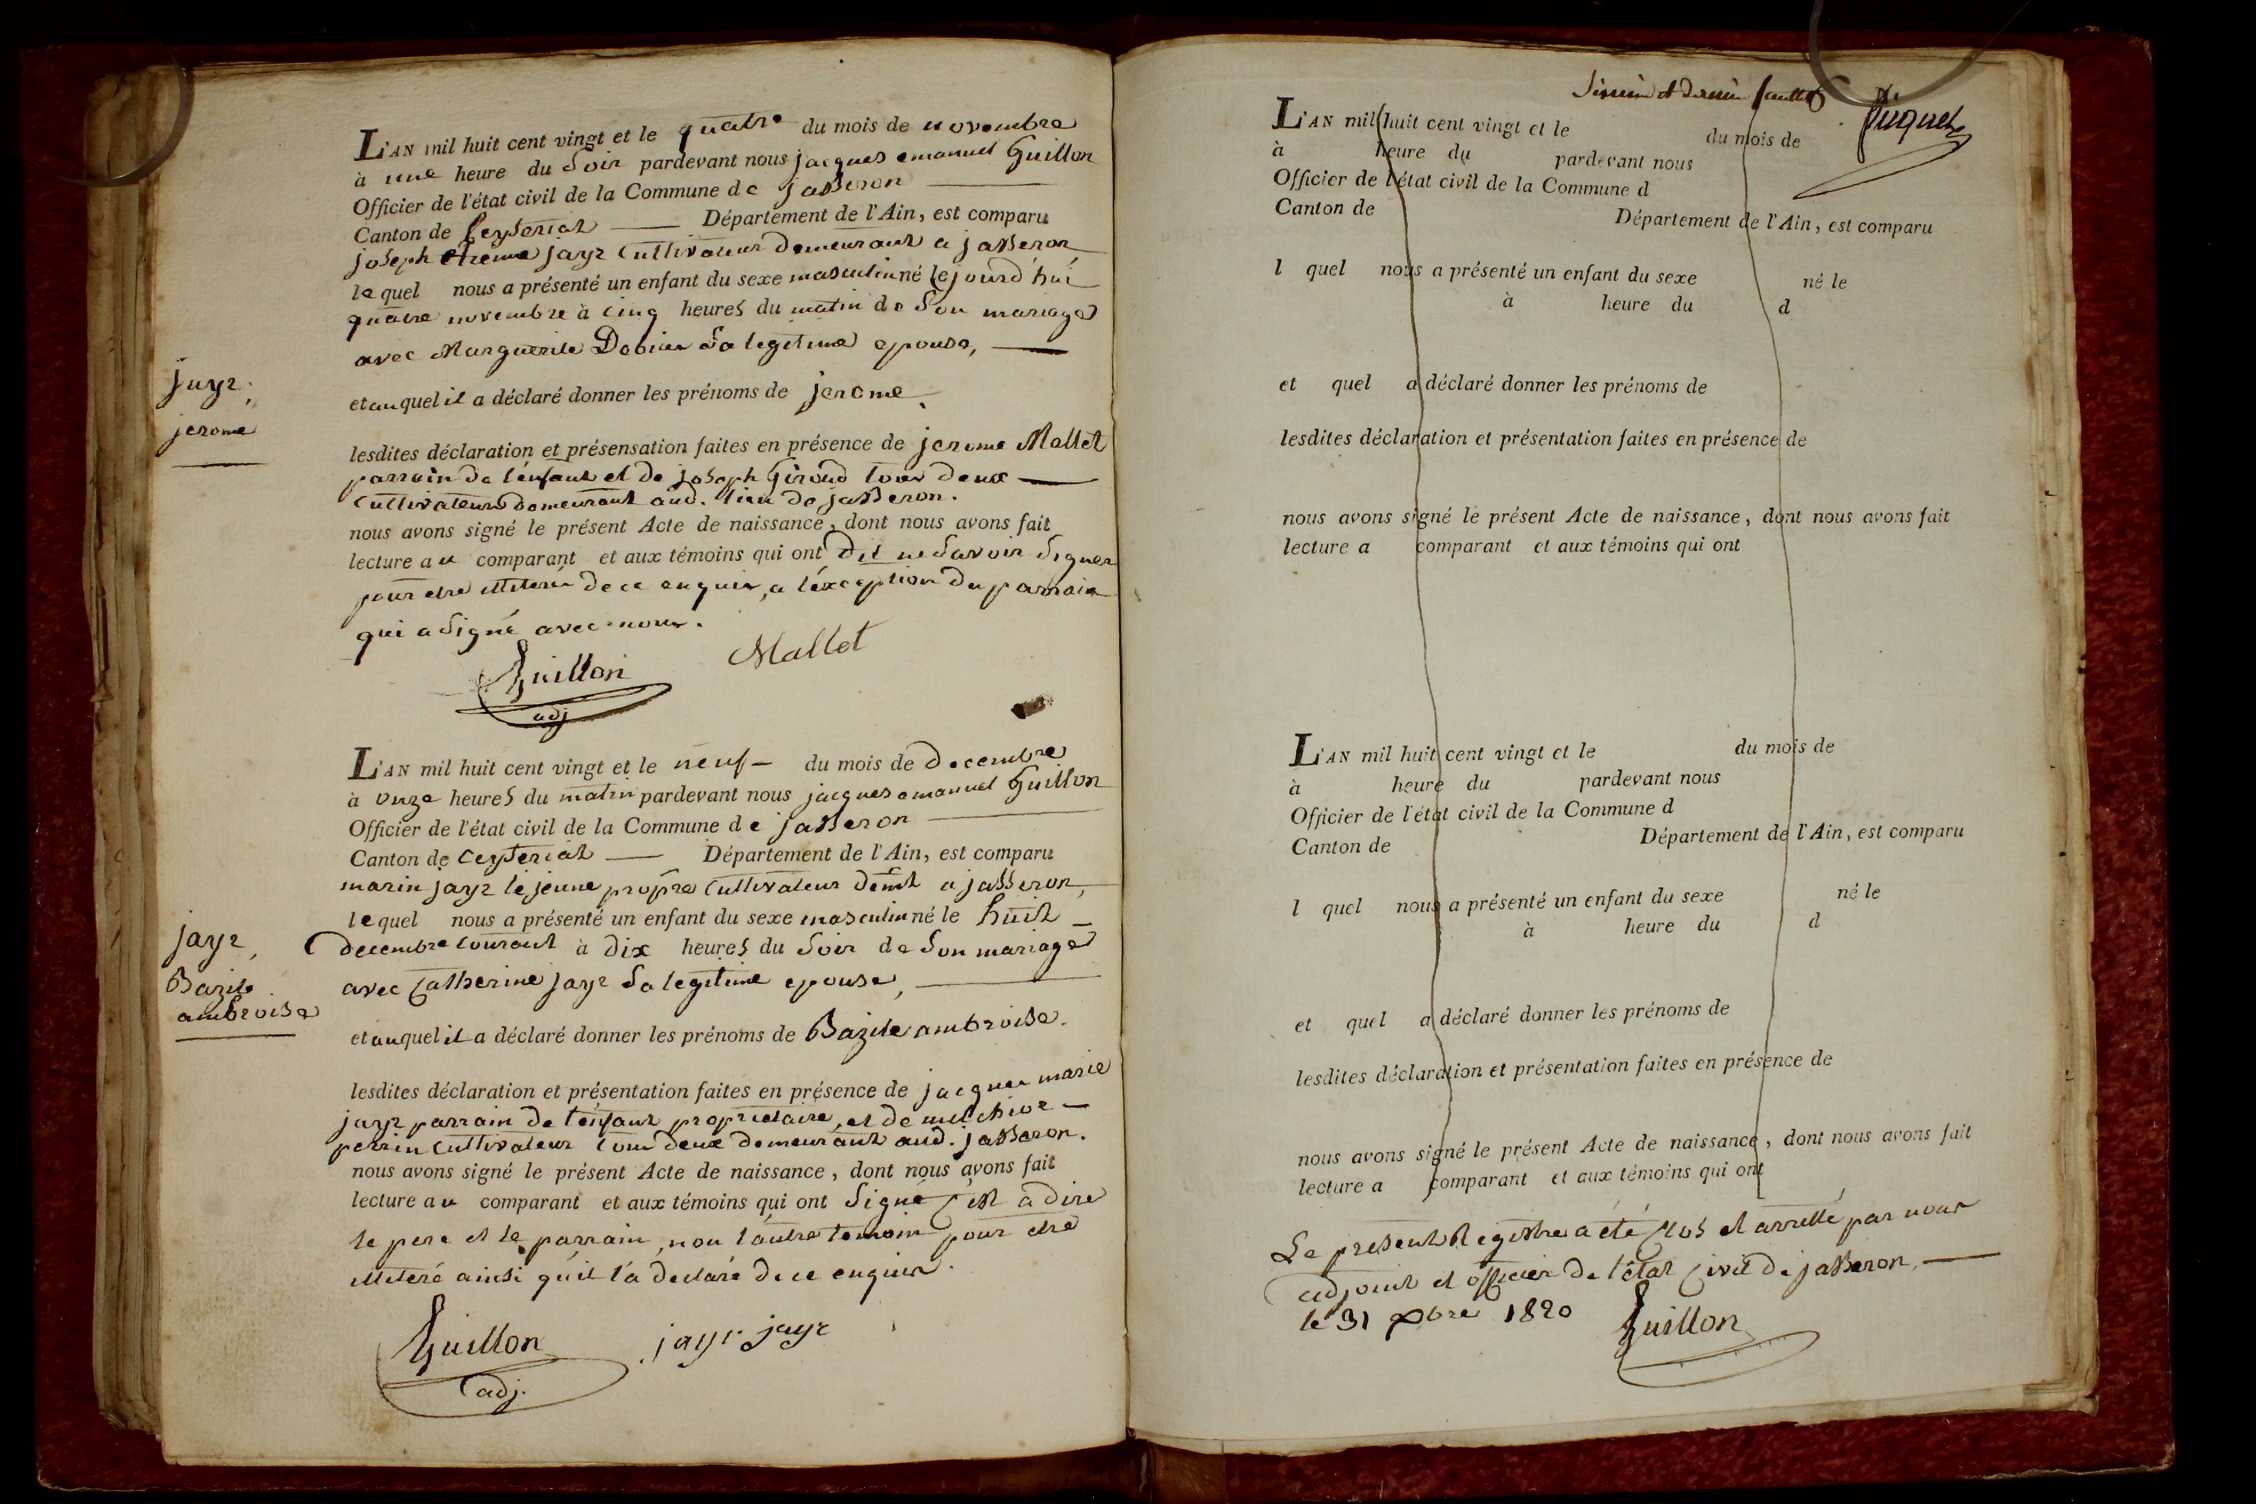 L'AN mil huit cent vingt et le quatre du mois de novembre
à une heure du Soir pardevant nous jacques emanuel Guillon
Officier de l'état civil de la Commune de jasseron
Canton de Ceyseriat Département de l'Ain, est comparu
joseph jayr Cultivateur demeurant a jasseron
lequel nous a présenté un enfant du sexe masculin né cejourd'hui
quatre novembre à cinq heures du matin de Son mariage
avec Marguerite Sa legitime epouse,
jayr,
jerome
et auquel il a déclaré donner les prénoms de jerome
lesdites déclaration et présensation faites en présence de jerome Mallet
parrain de l'enfant et de joseph Giroud tous deux
Cultivateurs demeurant aud. lieu de jasseron.
nous avons signé le présent Acte de naissance, dont nous avons fait
lecture au comparant et aux témoins qui ont Dit ne Savoir Signer
pour etre illiterés de ce enquis, a l'exception du parrain
qui a Signé avec nous.
Guillon
adj
Mallet
L'AN mil huit cent vingt et le neuf du mois de decembre
à onze heures du matin pardevant nous jacques emanuel Guillon
Officier de l'état civil de la Commune de jasseron
Canton de Ceyseriat Département de l'Ain, est comparu
marin jayr le jeune propre Cultivateur demt a jasseron,
lequel nous a présenté un enfant du sexe masculin né le huit
decembre courant à dix heures du Soir de Son mariage
jayr,
Bazile
ambroise
avec Catherine jayr Sa legitime epouse,
et auquel il a déclaré donner les prénoms de Bazile ambroise.
lesdites déclaration et présentation faites en présence de jacques marie
jayr parrain de l'enfant proprietaire, et de melchior
perrin Cultivateur tous deux demeurant aud. jasseron.
nous avons signé le présent Acte de naissance, dont nous avons fait
lecture au comparant et aux témoins qui ont Signé C'est à dire
le pere et le parrain, non l'autre temoin pour etre
illiteré ainsi qu'il l'a declaré de ce enquis.
Guillon
adj.
jayr jayr
et dernier feuillet
L'AN mil huit cent vingt et le du mois de
à heure du pardevant nous
Officier de l'état civil de la Commune d
Canton de Département de l'Ain, est comparu
l quel nous a présenté un enfant du sexe né le
à heure du d
et quel a déclaré donner les prénoms de
lesdites déclaration et présentation faites en présence de
nous avons signé le présent Acte de naissance, dont nous avons fait
lecture a comparant et aux témoins qui ont
L'AN mil huit cent vingt et le du mois de
à heure du pardevant nous
Officier de l'état civil de la Commune d
Canton de Département de l'Ain, est comparu
l quel nous a présenté un enfant du sexe né le
à heure du d
et quel a déclaré donner les prénoms de
lesdites déclaration et présentation faites en présence de
nous avons signé le présent Acte de naissance, dont nous avons fait
lecture a comparant et aux témoins qui ont
Le present Registre a été Clos et arretté par nous
adjoint et officier de l'état Civil de jasseron,
le 31 Xbre 1820
Guillon